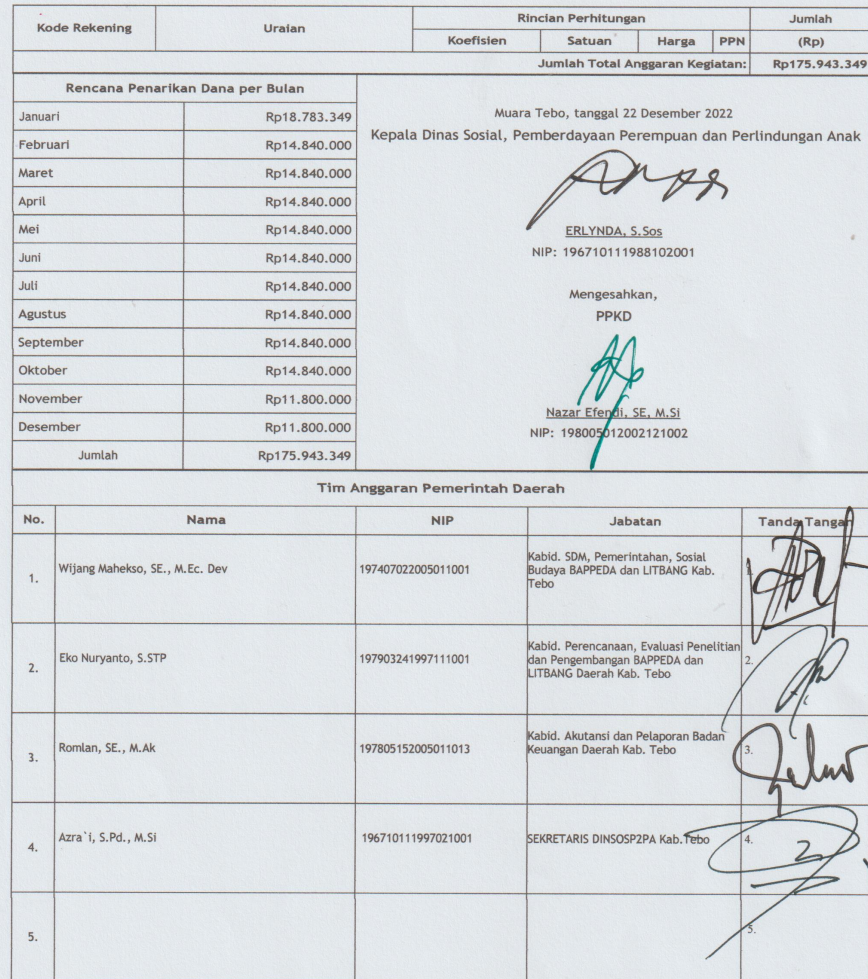 Kode Rekening Uraian Rincian Perhitungan Jumlah
Koefisien Satuan Harga PPN (Rp)
Jumlah Total Anggaran Kegiatan: Rp175.943.349
Rencana Penarikan Dana per Bulan
Januari Rp18.783.349
Februari Rp14.840.000
Maret Rp14.840.000
April Rp14.840.000
Mei Rp14.840.000
Juni Rp14.840.000
Juli Rp14.840.000
Agustus Rp14.840.000
September Rp14.840.000
Oktober Rp14.840.000
November Rp11.800.000
Desember Rp11.800.000
Jumlah Rp175.943.349
Muara Tebo, tanggal 22 Desember 2022
Kepala Dinas Sosial, Pemberdayaan Perempuan dan Perlindungan Anak
ERLYNDA, S.Sos
NIP: 196710111988102001
Mengesahkan,
PPKD
Nazar Efendi, SE, M.Si
NIP: 198005012002121002
Tim Anggaran Pemerintah Daerah
No. Nama NIP Jabatan Tanda Tangan
1. Wijang Mahekso, SE., M.Ec. Dev 197407022005011001 Kabid. SDM, Pemerintahan, Sosial
Budaya BAPPEDA dan LITBANG Kab.
Tebo
1.
2. Eko Nuryanto, S.STP 197903241997111001 Kabid. Perencanaan, Evaluasi Penelitian
dan Pengembangan BAPPEDA dan
LITBANG Daerah Kab. Tebo
2.
3. Romlan, SE., M.Ak 197805152005011013 Kabid. Akutansi dan Pelaporan Badan
Keuangan Daerah Kab. Tebo
3.
4. Azra`i, S.Pd., M.Si 196710111997021001 SEKRETARIS DINSOSP2PA Kab.Tebo 4.
5. 5.